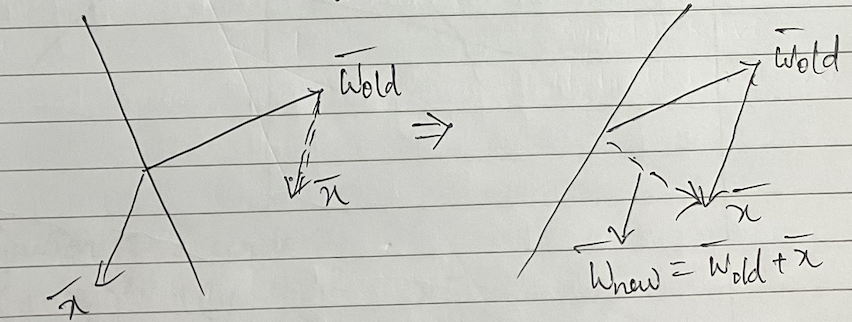 w̄old
x̄
⇒
x̄
w̄old
x̄
w̄new = w̄old + x̄